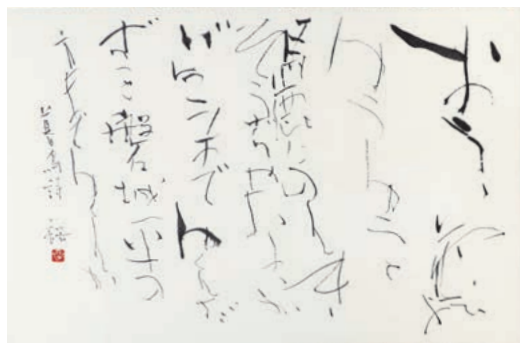 おうい雲よ
ゆうゆうと
馬鹿にのんき
そうぢゃないか
どこまでゆくんだ
ずっと磐城平の
方までゆくんか